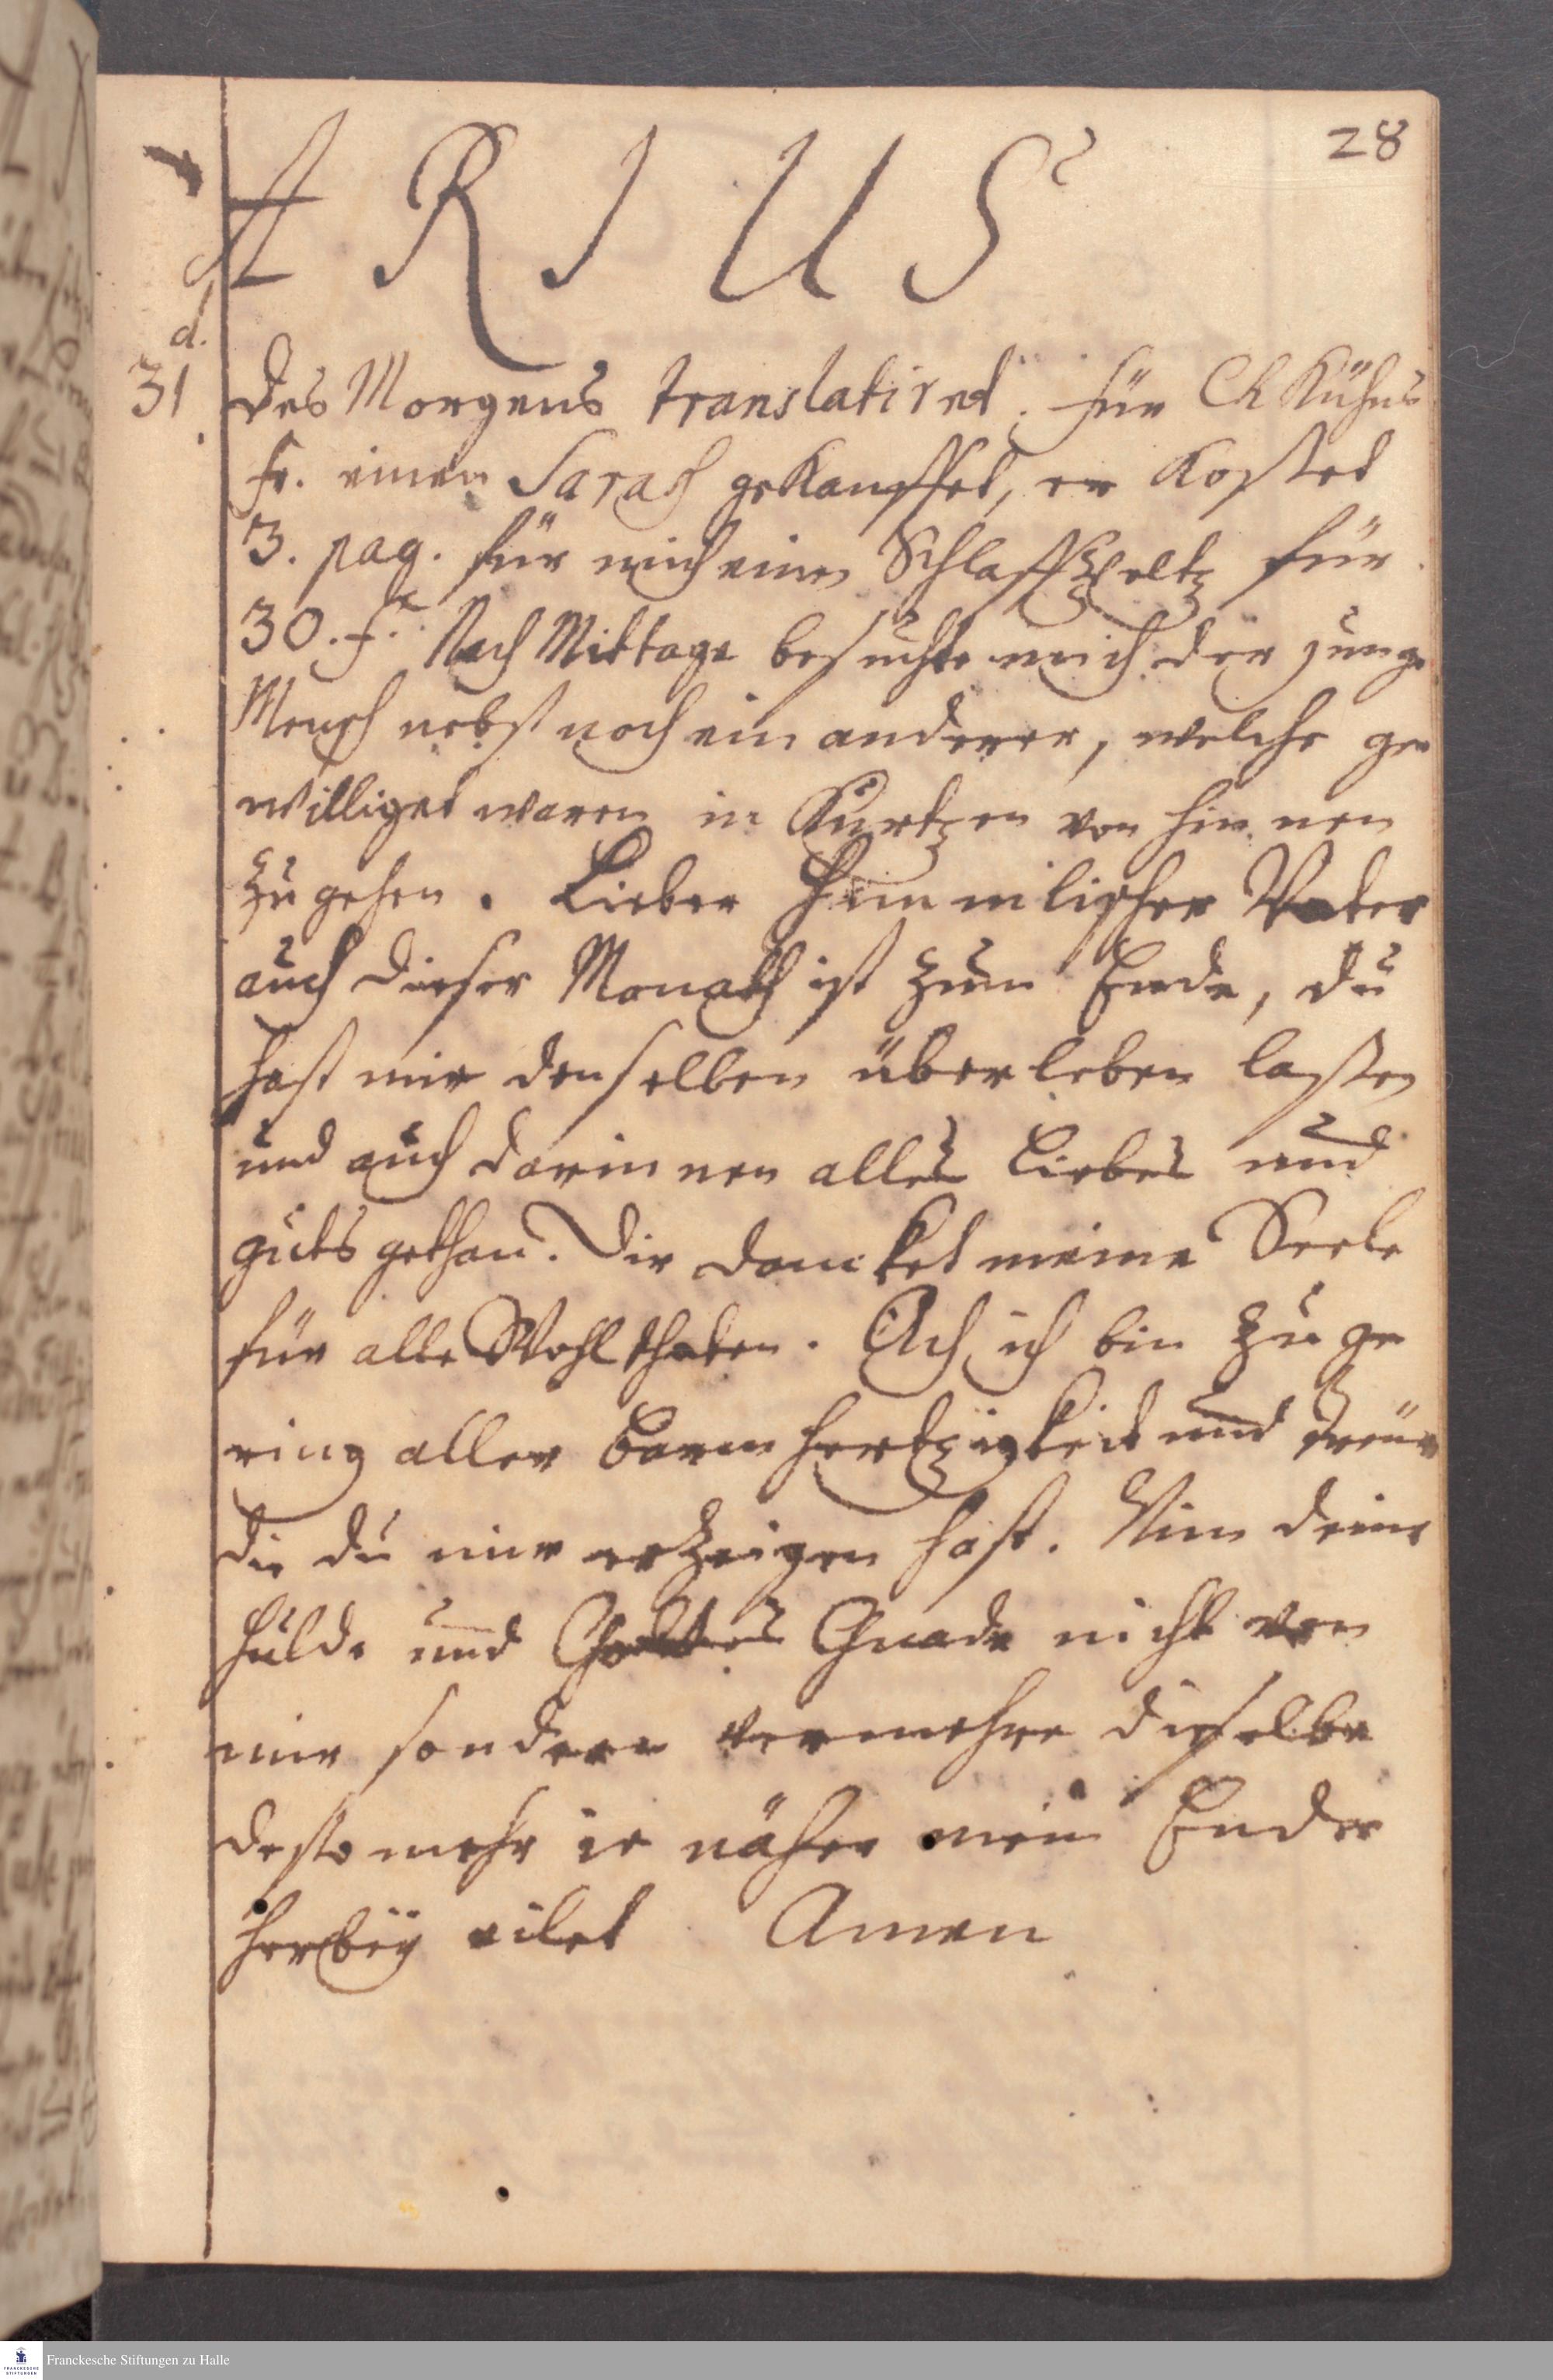 28
A R I U S
d.
31 des Morgens translatiret. für Ch Kühns
fr. einen Saraf gekauffet, er kostet
3. pag. für mich einen Schlaffpeltz für
30. f. Nach Mittage besuchte mich der junge
Mensch nebst noch ein anderer, welche ge
williget waren in Kurtzen von hinnen
zu gehen. Lieber Himmlischer Vater
auch dieser Monath ist zum Ende, du
hast mir denselben überleben lassen
und auch darinnen alles Liebes und
guts gethan. Dir dancket meine Seele
für alle Wohlthaten. Ach ich bin zu ge
ring aller Barmhertzigkeit und Treue
die du mir erzeigen hast. Nim deine
Hulde und Gnade nicht von
mir sondern vermehre dieselbe
desto mehr ie näher mein Ende
herbey eilet Amen
Franckesche Stiftungen zu Halle